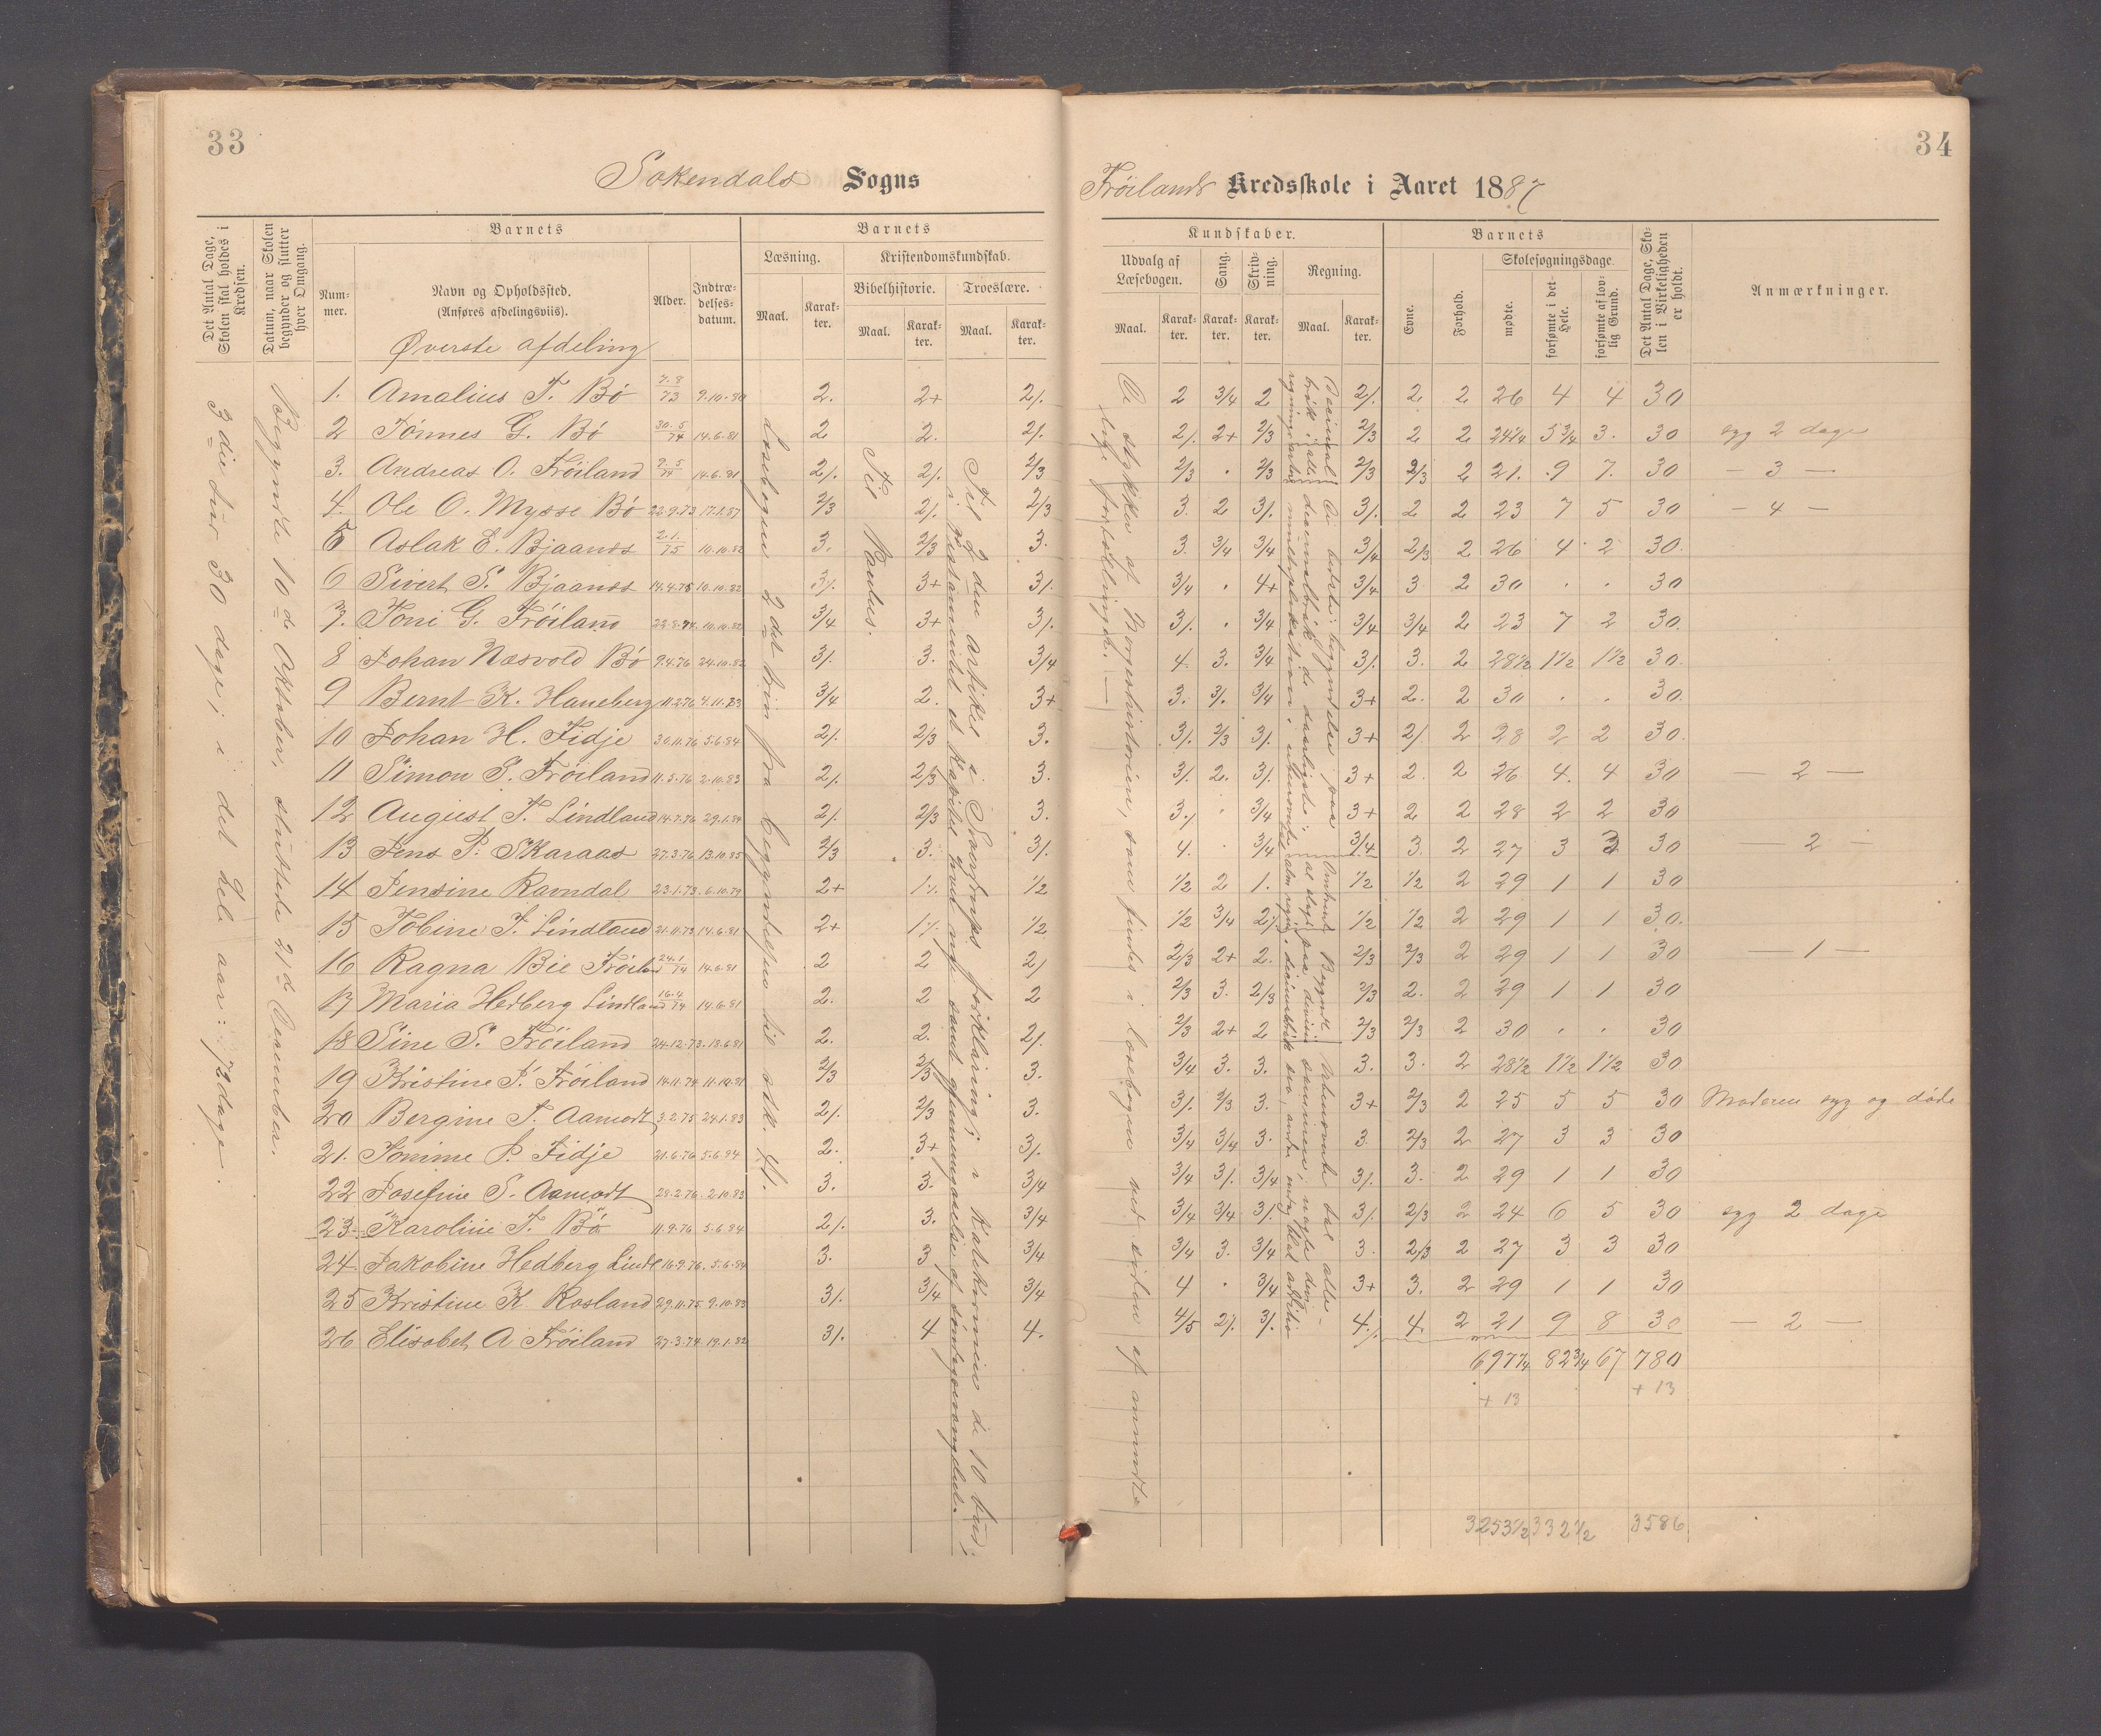 33
34
Sokendals Sogns
Frøilands Kredsskole i Aaret 1887
Det Antal Dage, Skolen skal holdes i Kredsen.
Datum, naar Skolen begynder og slutter hver Omgang.
Barnets
Barnets
Kundskaber.
Barnets
Num-mer.
Navn og Opholdssted.
(Anføres afdelingsviis).
Alder.
Indtræ-delses-datum.
Læsning.
Kristendomskundskab.
Bibelhistorie.
Troeslære.
Maal.
Karak-ter.
Maal.
Karak-ter.
Maal.
Karak-ter.
Udvalg af Læsebogen.
Sang.
Skriv-ning.
Regning.
Maal.
Karak-ter.
Karak-ter.
Karak-ter.
Maal.
Karak-ter.
Evne.
Forhold.
Skolesøgningsdage.
mødte.
forsømte i det Hele.
forsømte af lov-lig Grund.
Det Antal Dage, Sko-len i Virkeligheden er holdt.
Anmærkninger.
Øverste afdeling
3die tur 30 dage; i det hele aar: 72 dage.
Begyndte 10de Oktober, sluttede 21de December.
Læsebogen 2det trin fra begyndelsen til stk. 41.
Til Paulus.
Til 2den artikel i Sverdrups forklaring; i Katekismen de 10 bud;
1. Amalius T. Bø 7.8/73 9.10.80 2. 2+ 2/. 2 3/4 2 2/. 2 2 26 4 4 30
2 Tönnes G. Bø 30.5/74 14.6.81 2 2. 2/. 2/. 2+ 2/3 2/3 2 2 24 1/4 5 3/4 3. 30 syg 2 dage
3. Andreas O. Frøiland 9.5/74 14.6.81 2/. 2/. 2/3 2/3 . 2/3 2/3 2/3 2 21. 9 7. 30 — 3 —
4. Ole O. Mysse Bø 22.9.73 17.1.87 2/3 2/. 2/3 3. 2 3/. 3/. 2 2 23 7 5 30 — 4 —
5 Aslak E. Bjaanes 2.1./75 10.10.82 3. 2/3 3. 3. 3/4 3/4 3/4 2/3 2 26 4 2 30.
6 Sivert S. Bjaanes 14.4.75 10.10.82 3/. 3+ 3/. 3/4 . 4+ 3/4 3 2 30 . . 30
7. Toni G. Frøiland 22.8.74 10.10.82 3/4 3+ 3/. 3/. . 3/4 3/4 3/4 2 23 7 2 30.
8 Johan Næsvold Bø 9.4.76 24.10.82 3/. 3. 3/4 4. 3. 3/4 3/. 3. 2 28 1/2 1 1/2 1 1/2 30.
9 Bernt K. Haneberg 11.2.76 4.11.83 3/4 2. 3+ 3. 3/. 3/4 3+ 2. 2 30 . . 30.
10 Johan H. Fidje 30.11.76 5.6.84 2/. 2/3 3. 3/. 2/3 3/. 3+ 2/. 2 28 2 2 30.
11 Simon S. Frøiland 11.5.76 2.10.83 2/. 2/3 3. 3/. 2. 3/. 3+ 2. 2 26 4. 4 30 — 2 —
12 August T. Lindland 14.7.76 29.1.84 2/. 2/3 3. 3/. . 3/4 3+ 2 2 28 2 2 30
13 Jens P. Skaraas 27.3.76 13.10.85 2/3 3. 3/. 4. . 3/4 3/4 3. 2 27 3 3 30 — 2 —
14 Jensine Ravndal 23.1.73 6.10.79 2+ 1/. 1/2 1/2 2 1. 1/2 1/2 2 29 1 1 30
15 Tobine T. Lindland 21.11.73 14.6.81 2+ 1/. 1/2 1/2 3/4 2/. 1/2 1/2 2 29 1 1 30.
16 Ragna Bie Frøiland 24.1/74 14.6.81 2 2 2/ 2/3 2+ 2. 2/3 2/3 2 29 1 1 30 — 1 —
17 Maria Hedberg Lindland 16.4/74 14.6.81 2. 2 2 2/3 3. 2/3 2/3 2. 2 29 1 1 30
18 Sine S. Frøiland 24.12.73 18.6.81 2. 2. 2/. 2/3 2+ 2 2/3 2/3 2 30 . . 30
19 Kristine S. Frøiland 14.11.74 11.10.81 2/3 2/3 3. 3/4 3. 3. 3. 3. 2 28 1/2 1 1/2 1 1/2 30
20 Bergine T. Aamodt 3.2.75 24.1.83 2/. 2/3 3. 3/. 2/3 3. 3+ 2/3 2 25 5 5 30 Moderen syg og døde
21. Tomine P. Fidje 21.6.76 5.6.84 2. 3+ 3/. 3/4 3/4 3. 3 2/3 2 27 3 3 30
22 Josefine S. Aamodt 28.2.76 2.10.83 3. 3. 3/4 3/4 3/. 3/4 3/. 3. 2 29 1 1 30
23. Karoline T. Bø 11.9.76 5.6.84 2/. 3. 3/4 3/4 3/4 3/. 3/. 2/3 2 24 6 5 30 syg 2 dage
24 Jakobine Hedberg Lindl 16.9.76 5.6.84 3. 3 3/4 3/4 3. 3/4 3. 2/3 2 27 3 3 30
25 Kristine K. Rosland 29.11.75 9.10.83 3/. 3/4 3/4 4 . 3/4 3+ 3. 2 29 1 1 30
26 Elisabet A Frøiland 27.3.74 19.1.82 3/. 4 4. 4/5 2/. 3/. 4/. 4. 2 21 9 8 30 — 2 —
697 1/4 82 3/4 67 780
+ 13 + 13
3253 1/2 332 1/2 3586